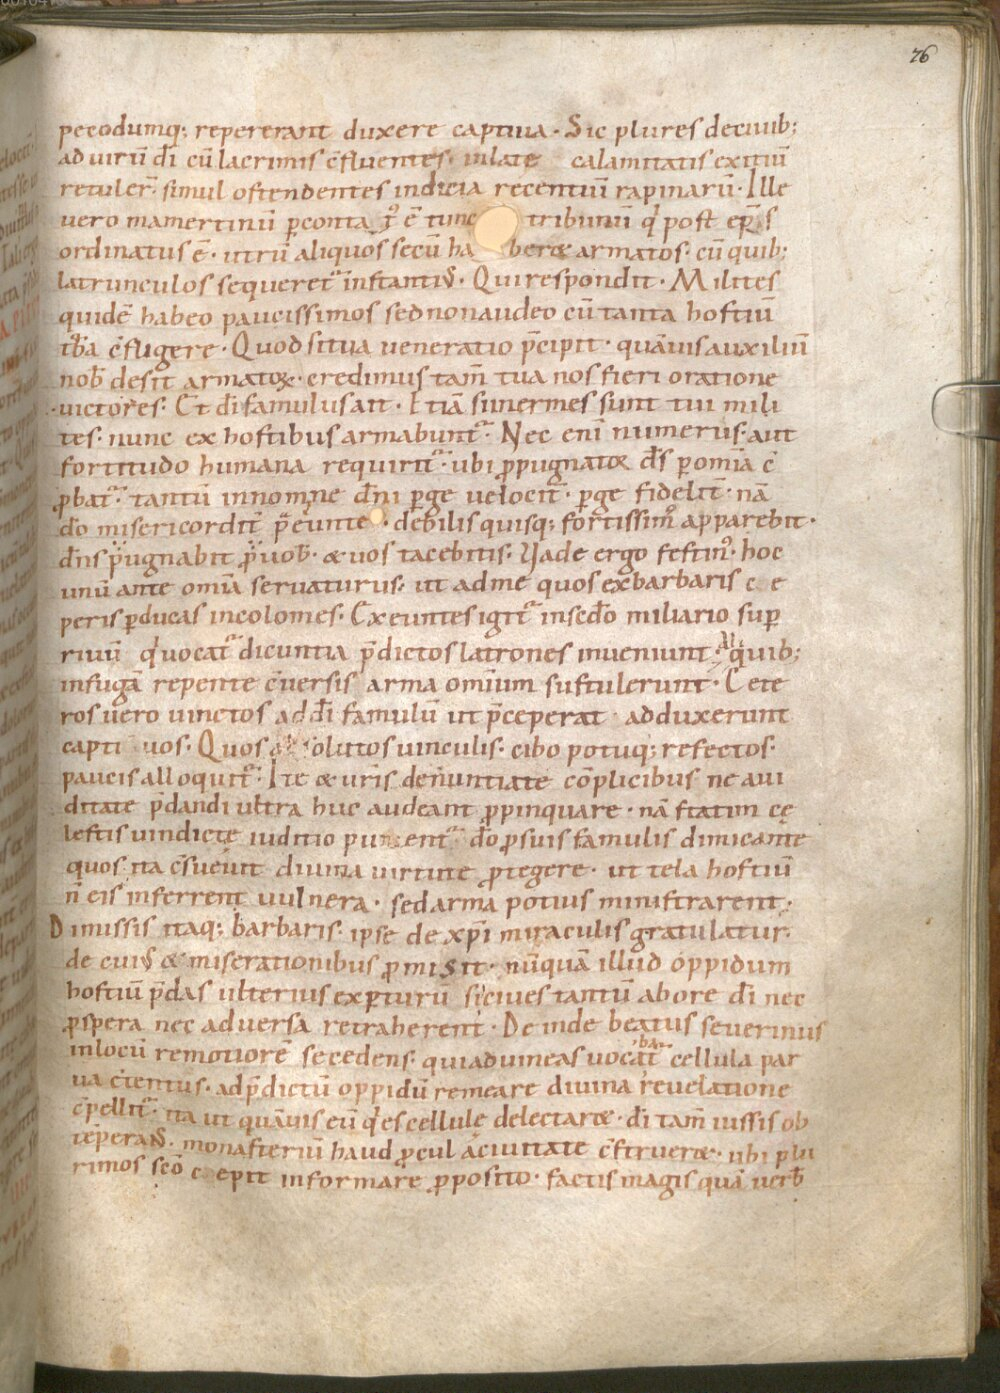 76
pecodumq; repererant duxere captiua. Sic plures deciuib;
ad uirū dī cū lacrimis c̄fluentes. inlate calamitatis exitiū
retuler̄ simul ostendentes indicia recentiū rapinarū. Ille
uero mamertinū ꝑconta tunc tribunū q post ep̄s
ordinatus ē. utrū aliquos secū ha berę armatos. cū quib;
latrunculos sequeret᷑ instantiꝰ. Qui respondit. Milites
quidē habeo paucissimos sed non audeo cū tanta hostiū
t̄ba c̄fligere. Quod si tua ueneratio p̄cipit. quāuis auxiliū
nob̄ desit armatoꝝ. credimus tam̄ tua nos fieri oratione
uictores. Et dī famulus ait. Etiā si inermes sunt tui mili
tes. nunc ex hostibus armabunt᷑. Nec enī numerus. aut
fortitudo humana requirit᷑. ubi ꝓpugnatoꝝ d̄s ꝑ omīa c̄
ꝓbat᷑. tantū in nomine dn̄i ꝑge uelocit̄. ꝑge fidelit̄. nā
dō misericordit̄ p̄eunte. debilis quisq; fortissimꝰ apparebit.
dn̄s ꝓugnabit ꝓ uob̄. & uos tacebitis. Vade ergo festinꝰ. hoc
unū ante omīa seruaturus. ut ad me quos ex barbaris c e
peris ꝑducas incolomes. Exeuntes igit᷑ in scdō miliario suꝑ
riuū q uocat᷑ dicuntia p̄dictos latrones inueniunt. quib;
in fugā repente c̄uersis arma omīum sustulerunt. Cete
ros uero uinctos ad dī famulū ut p̄ceperat adduxerunt
capti uos. Quos absolutos uinculis. cibo potuq; refectos.
paucis alloquit᷑. Ite & ur̄is denuntiate cōplicibus ne aui
ditate p̄dandi ultra huc audeant ꝓpinquare. nā statim cę
lestis uindictę iuditio punient᷑. dō ꝓ suis famulis dimicante
quos ita c̄sueuit diuina uirtute ꝓtegere. ut tela hostiū
n̄ eis inferrent uulnera. sed arma potius ministrarent.
Dimissis itaq; barbaris. ipse de xp̄i miraculis gratulatur.
de cuiꝰ & miserationibus ꝓmisit. nūquā illud oppidum
hostiū p̄das ulterius exꝑturū si ciues tantū abore dī nec
ꝓspera nec aduersa retraherent. Deinde beatus seuerinus
in locū remotiorē secedens. qui ad uineas uocabat᷑ cellula par
ua c̄tentus. ad p̄dictū oppidū remeare diuina reuelatione
c̄pellit᷑. ita ut quāuis eū q es cellule delectaret. dī tam̄ iussis ob
tēꝑanꝰ. monasteriū haud ꝓcul a ciuitate c̄struerę. ubi plu
rimos scō c epit informare ꝓposito. factis magis quā uerb̄